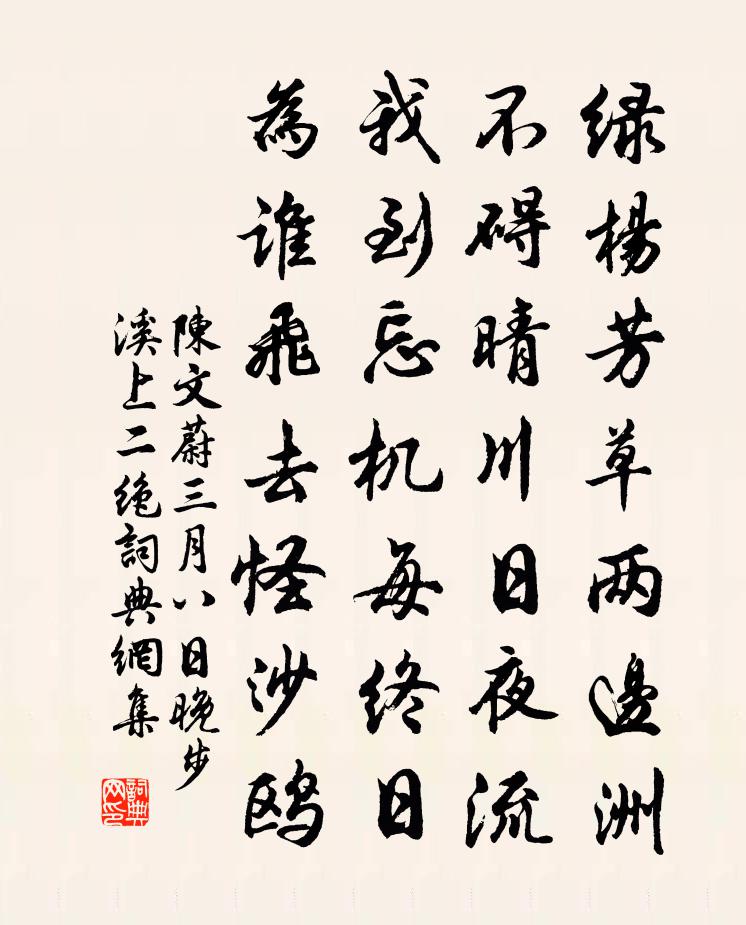 绿楊芳草两邊洲
不碍晴川日夜流
我到忘机每终日
為谁飛去怪沙鸥
陳文蔚三月八日晚步
溪上二绝詞典網集
詞典
网印